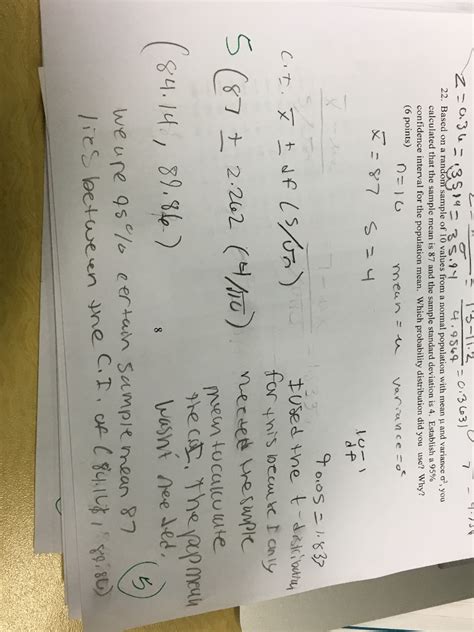 z = 0.36 =
22. Based on a random sample of 10 values from a normal population with mean μ and variance σ², you
calculated that the sample mean is 87 and the sample standard deviation is 4. Establish a 95%
confidence interval for the population mean. Which probability distribution did you use? Why?
(6 points)
n=10 mean = μ variance = σ²
x̄ = 87 s = 4
10-1
df
9 0.05 = 1.833
C.I. x̄ ± df (s/√n)
I used the t-distribution
for this because I only
needed the sample
mean to calculate
the CI. The pop mean
wasn't needed.
5 (87 ± 2.262 (4/√10)
(84.14, 89.86)
8
we are 95% certain sample mean 87
lies between the C.I. of (84.14, 89.86)
5